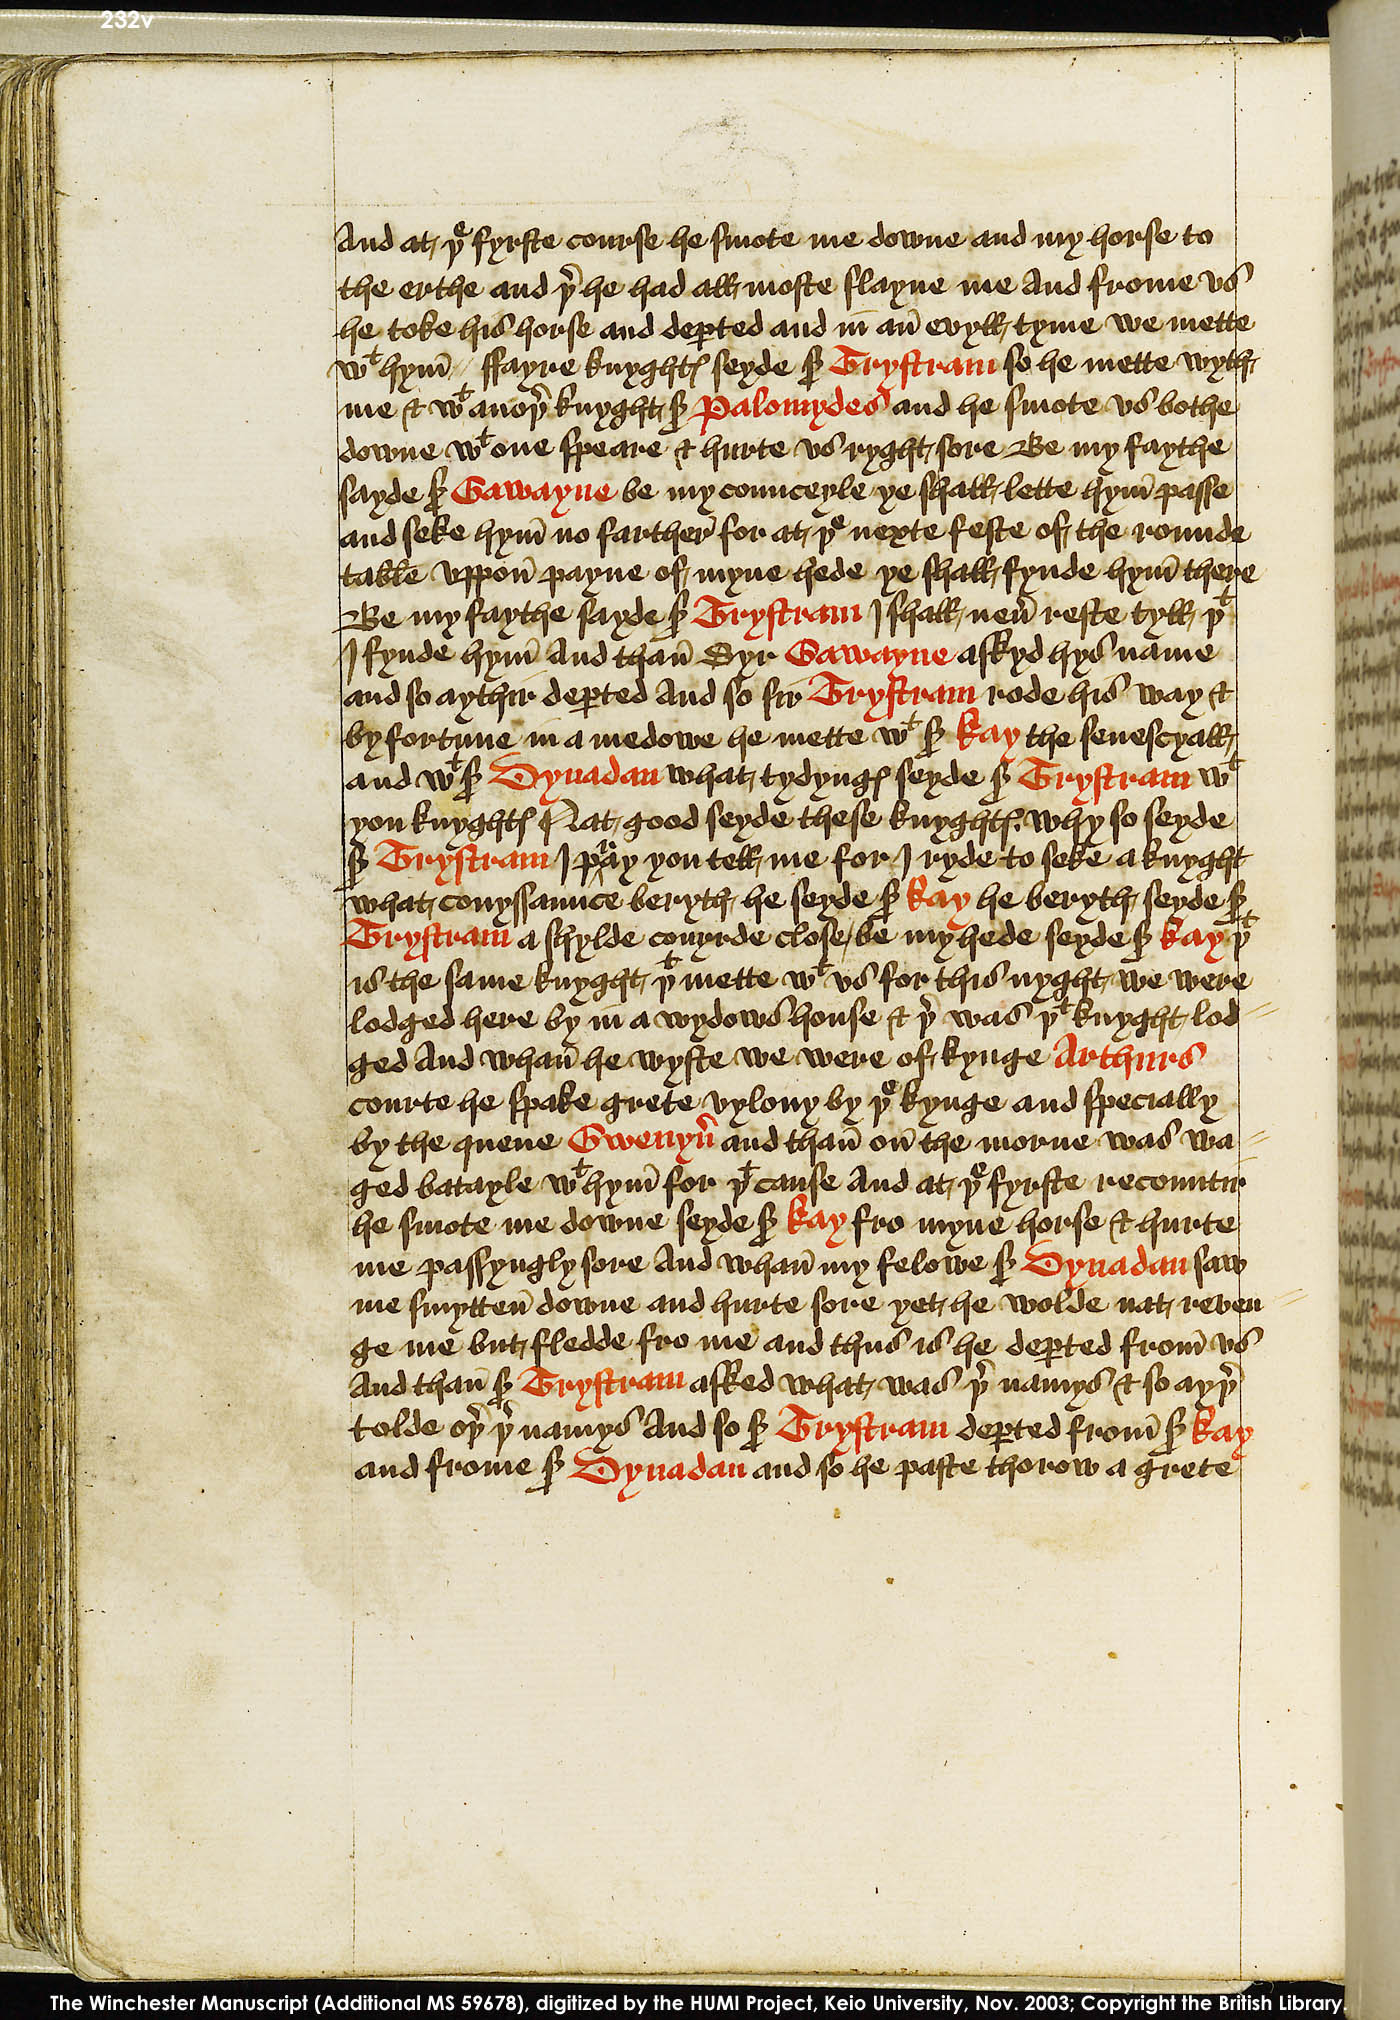 232v
And at þͤ fyrste course he smote me downe and my horse to
the erthe and þ̉e he had all moste slayne me And frome vs
he toke his horse and dep̱ted and in an̄ evyll tyme we mette
wᵗ hym̄ / ffayre knyghtꝭ seyde sͬ Trystram so he mette wyth
me & wᵗ anoþ̉ knyght sͬ Palomydes and he smote vs bothe
downe wᵗ one speare & hurte vs ryght sore Be my faythe
sayde sͬ Gawayne be my counceyle ye shall lette hym̄ passe
and seke hym̄ no farther for at þͤ nexte feste of the rounde
table vppon̄ payne of myne hede ye shall fynde hym̄ there
Be my faythe sayde sͬ Trystram I shall neũ reste tyll þᵗ
I fynde hym̄ And than̄ Syr Gawayne askyd hys name
and so aythir dep̱ted And so sir Trystram rode his way &
by fortune in a medowe he mette wᵗ sͬ kay the senescyall
and wᵗ sͬ Dynadan what tydyngꝭ seyde sͬ Trystram wᵗ
you knyghtꝭ Nat good seyde these knyghtꝭ. why so seyde
sͬ Trystram I pray you tell me for I ryde to seke a knyght
what conyssaunce beryth he seyde sͬ kay he beryth seyde sͬ
Trystram a shylde couyrde close / be my hede seyde sͬ kay þᵗ
is the same knyght þᵗ mette wᵗ vs for this nyght we were
lodged here by in a wydows house & þ̉ was þᵗ knyght lod=
ged And whan̄ he wyste we were of kynge Arthurs
courte he spake grete vylony by þͤ kynge and specially
by the quene Gwenyũ and than̄ on̄ the morne was wa=
ged batayle wᵗ hym̄ for þᵗ cause And at þͤ fyrste recountir
he smote me downe seyde sͬ kay fro myne horse & hurte
me passyngly sore And whan̄ my felowe sͬ Dynadan saw
me smytten̄ downe and hurte sore yet he wolde nat reven=
ge me but fledde fro me and thus is he dep̱ted from̄ vs
And than̄ sͬ Trystram asked what was þ̉ namys & so ayþ̉
tolde oþ̉ þ̉ namys And so sͬ Trystram dep̱ted from̄ sͬ kay
and frome sͬ Dynadan and so he paste thorow a grete
The Winchester Manuscript (Additional MS 59678), digitized by the HUMI Project, Keio University, Nov. 2003; Copyright the British Library.